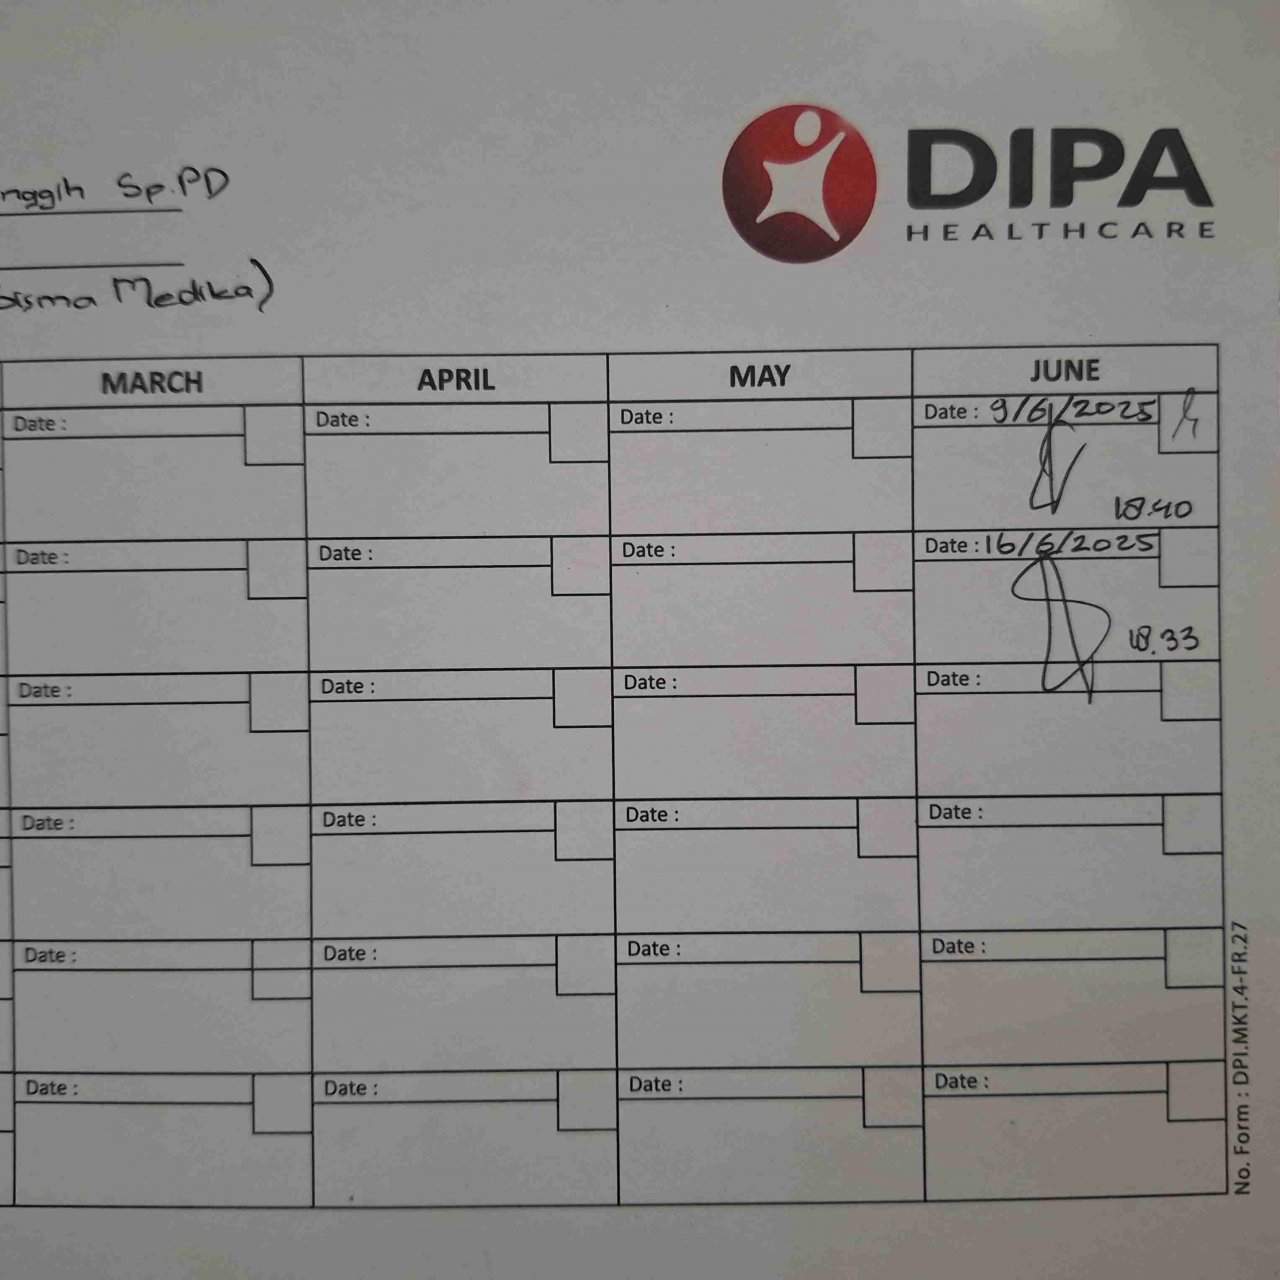 nggih Sp.PD
DIPA
HEALTHCARE
bisma Medika)
MARCH APRIL MAY JUNE
Date : Date : Date : Date : 9/6/2025
18.40
Date : Date : Date : Date : 16/6/2025
18.33
Date : Date : Date : Date :
Date : Date : Date : Date :
Date : Date : Date : Date :
Date : Date : Date : Date :
No. Form : DPI.MKT.4-FR.27